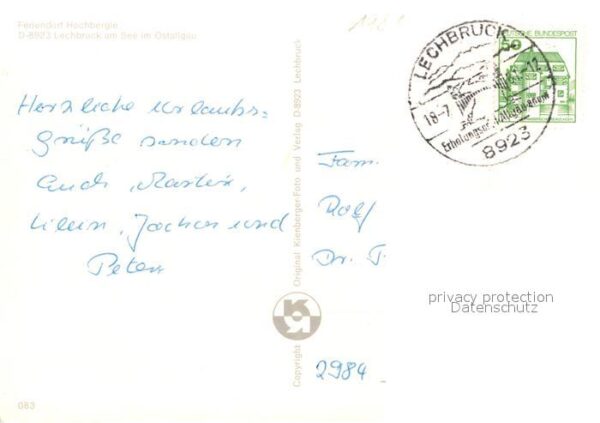 Feriendorf Hochbergle
D-8923 Lechbruck am See im Ostallgäu
Herzliche Urlaubs-
grüße senden
Euch Martin,
Jochen und
Peter
083
Copyright Original Kienberger-Foto und Verlag D 8923 Lechbruck
LECHBRUCK
18-7
-12
8923
50
DEUTSCHE BUNDESPOST
Fam.
Rolf
Dr. T
2984
privacy protection
Datenschutz